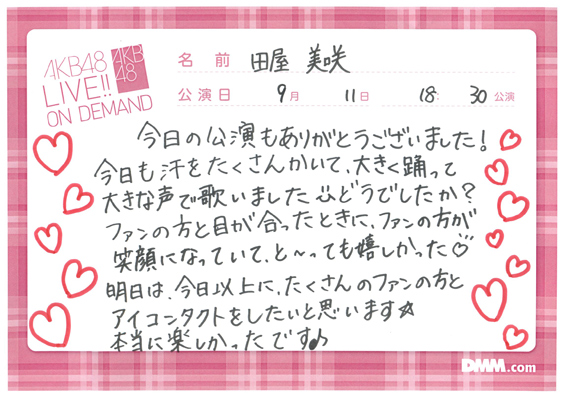 AKB48
LIVE!!
ON DEMAND
AKB
48
名 前 田屋 美咲
公演日 9月 11日 18: 30 公演
今日の公演もありがとうございました!
今日も汗をたくさんかいて、大きく踊って
大きな声で歌いました どうでしたか?
ファンの方と目が合ったときに、ファンの方が
笑顔になっていて、と〜っても嬉しかった♡
明日は、今日以上に、たくさんのファンの方と
アイコンタクトをしたいと思います☆
本当に楽しかったです♪
DMM.com